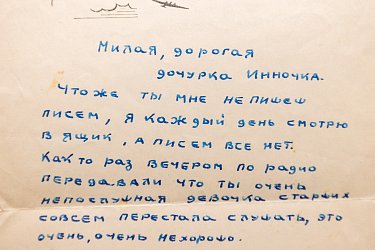 Милая, дорогая
дочурка Инночка.
Что же ты мне не пишеш
писем, я каждый день смотрю
в ящик, а писем все нет.
Как то раз вечером по радио
передавали что ты очень
непослушная девочка старших
совсем перестала слушать, это
очень, очень нехорошо.